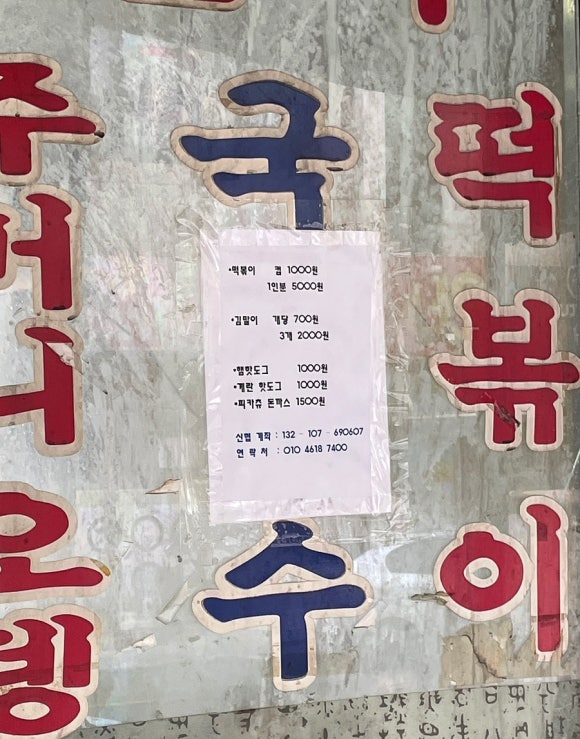 떡볶이
국수
주머니
오뎅
•떡볶이 컵 1000원
1인분 5000원
•김말이 개당 700원
3개 2000원
•햄핫도그 1000원
•계란 핫도그 1000원
•피카츄 돈까스 1500원
신협 계좌 : 132 - 107 - 690607
연 락 처 : 010 4618 7400